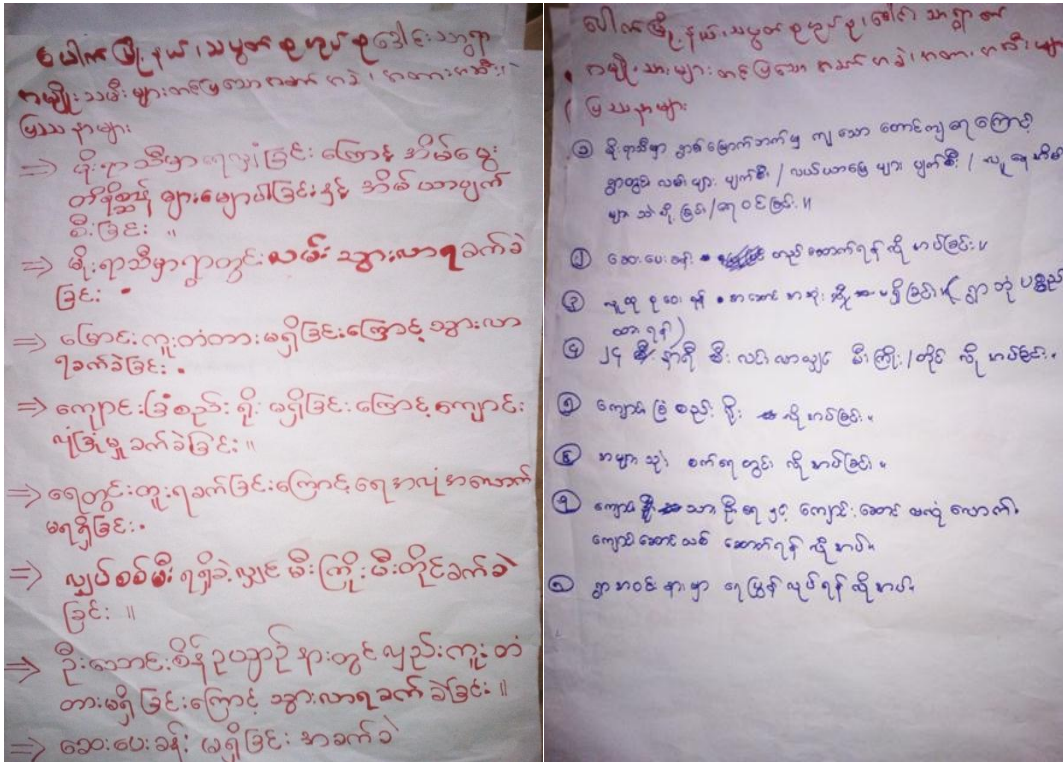 ပေါက်မြို့နယ်၊သပွတ်စုအုပ်စု ဒေါင်းသာရွာ
အမျိုးသမီးများတင်ပြသော အခက်အခဲ၊ အတားအဆီး၊
ပြဿနာများ
⇒ မိုးရာသီမှာရေလျှံခြင်းကြောင့် အိမ်မွေး
တိရိစ္ဆာန်များမျောပါခြင်းနှင့် အိမ်ယာပျက်
စီးခြင်း ။
⇒ မိုးရာသီမှာရွာတွင်းလမ်းသွားလာရခက်ခဲ
ခြင်း ။
⇒ မြောင်းကူးတံတားမရှိခြင်းကြောင့်သွားလာ
ရခက်ခဲခြင်း ။
⇒ ကျောင်းခြံစည်းရိုး မရှိခြင်းကြောင့်ကျောင်း
လုံခြုံမှုခက်ခဲခြင်း ။
⇒ ရေတွင်းတူးရခက်ခြင်းကြောင့်ရေအလုံအလောက်
မရရှိခြင်း ။
⇒ လျှပ်စစ်မီးရရှိခဲ့လျှင် မီးကြိုးမီးတိုင်ခက်ခဲ
ခြင်း ။
⇒ ဦးဘောင်းစိန်ဥယျာဉ်နားတွင်လှည်းကူးတံ
တားမရှိခြင်းကြောင့် သွားလာရခက်ခဲခြင်း ။
⇒ ဆေးပေးခန်း မရှိခြင်း အခက်ခဲ
ပေါက်မြို့နယ်၊သပွတ်စုအုပ်စု၊ဒေါင်းသာရွာ
အမျိုးသားများတင်ပြသော အခက်အခဲ၊ အတား၊ အဆီးများ
ပြဿနာများ
၁ မိုးရာသီမှာ ရွာမြောက်ဘက်မှ ကျသော တောင်ကျရေကြောင့်
ရွာတွင်း လမ်းများ ပျက်စီး / လယ်ယာမြေများ ပျက်စီး / လူနေအိမ်
များ သဲဖို့ခြင်း / ရေဝင်ခြင်း ။
၂ ဆေးပေးခန်း တည်ဆောက်ရန်လိုအပ်ခြင်း ။
၃ လူထုစုဝေးရန် အဆောင်အအုံ မရှိခြင်း ။ (ရွာဘုံပစ္စည်း
ထားရန်)
၄ ၂၄ နာရီ မီးလင်းလာလျှင် မီးကြိုး/တိုင် လိုအပ်ခြင်း ။
၅ ကျောင်းခြံစည်းရိုး လိုအပ်ခြင်း ။
၆ အများသုံး စက်ရေတွင်း လိုအပ်ခြင်း ။
၇ ကျောင်းသားဦးရေနှင့် ကျောင်းဆောင် မလုံလောက်၊
ကျောင်းဆောင်သစ် ဆောက်ရန် လိုအပ် ။
၈ ရွာအဝင်နားမှာ ရေပြွန်လုပ်ရန်လိုအပ် ။